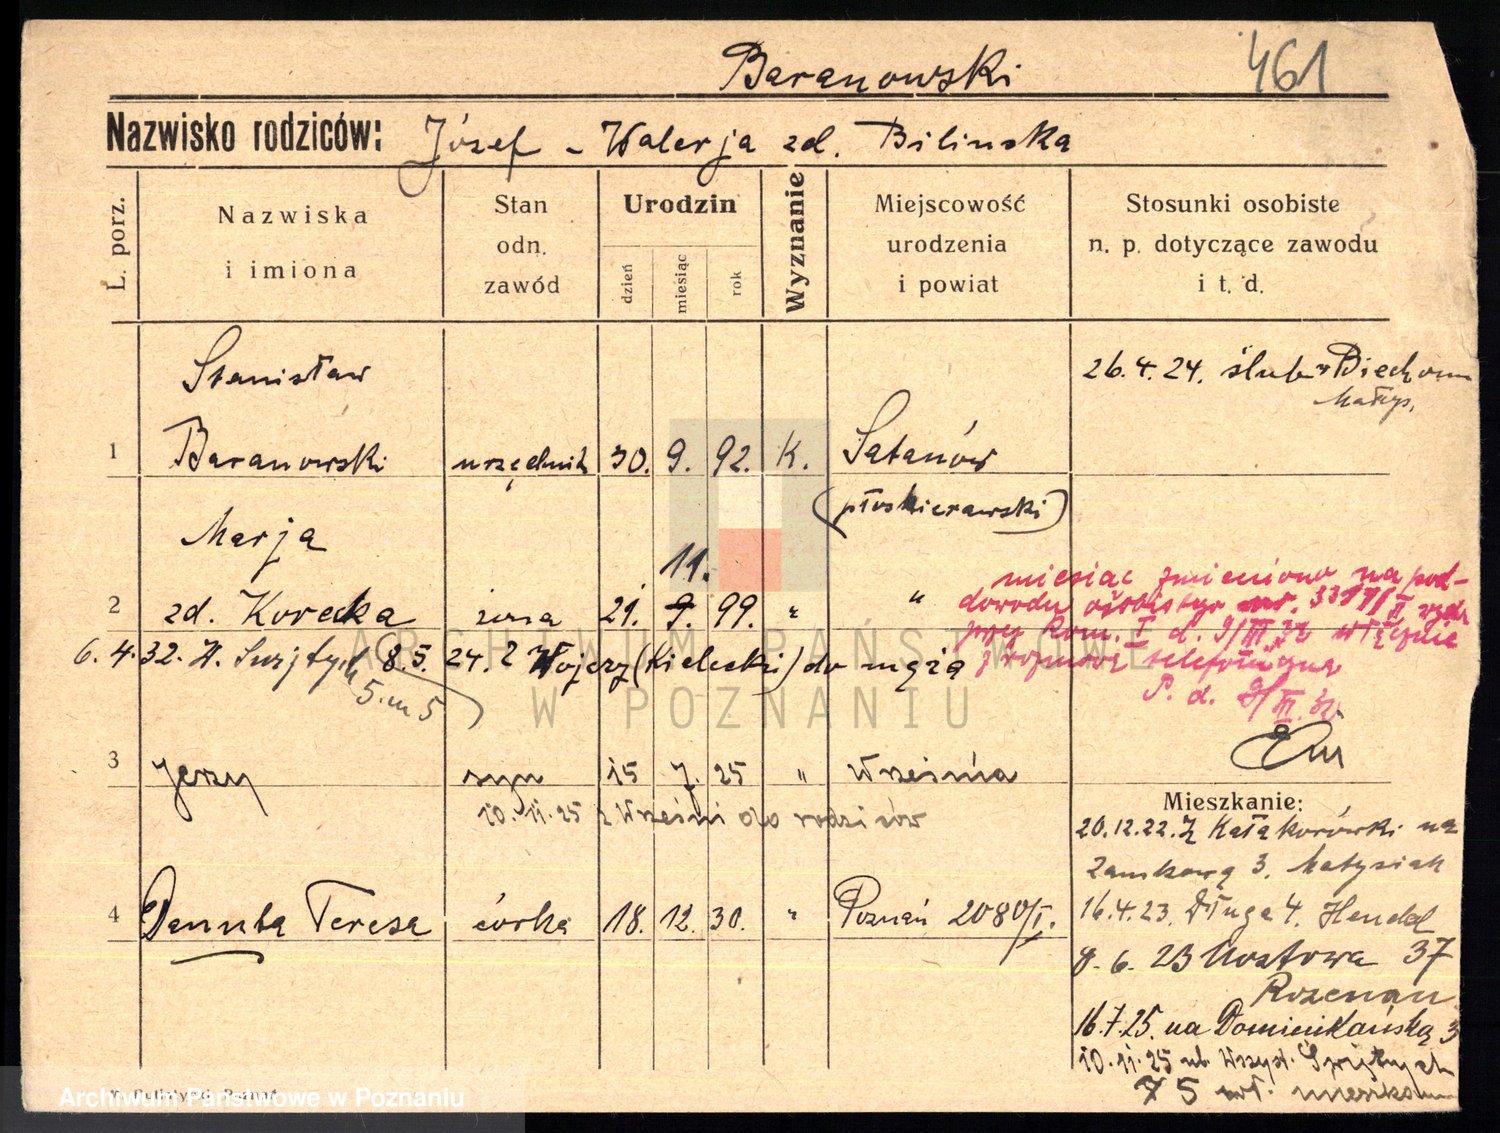 Baranowski
461
Nazwisko rodziców: Józef - Walerja zd. Bilinska
L. porz.
Nazwiska i imiona
Stan odn. zawód
Urodzin
dzień
miesiąc
rok
Wyznanie
Miejscowość urodzenia i powiat
Stosunki osobiste n. p. dotyczące zawodu i t. d.
Stanisław
26.4.24. ślub w
1 Baranowski urzędnik 30. 9. 92. K. Satanów
(płoskierawski)
Marja
11.
2 zd. Korecka żona 21. 9. 99. " "
miesiąc zmieniono na pod-
dowodu osobistego
przez Kom. I d. 9/III 32
rozmową telefoniczną
P. d. 9/III. 32
6.4.32. W. 8.5. 24. z (Kielecki) do męża
5. m 5
3 Jerzy syn 15 7. 25 " Września
10.11.25 z Wrześni do rodziców
Mieszkanie:
20.12.22. Z na
Zamkową 3. Matysiak
4 Danuta Teresa córka 18. 12. 30. " Poznań 2080/I.
16.4.23. Długa 4.
8.6.23 Mostowa 37
Rozenau
16.7.25. na Dominikańską 3
10.11.25 ul. Wszyst. Świętych
ARCHIWUM PAŃSTWOWE
W POZNANIU
Archiwum Państwowe w Poznaniu